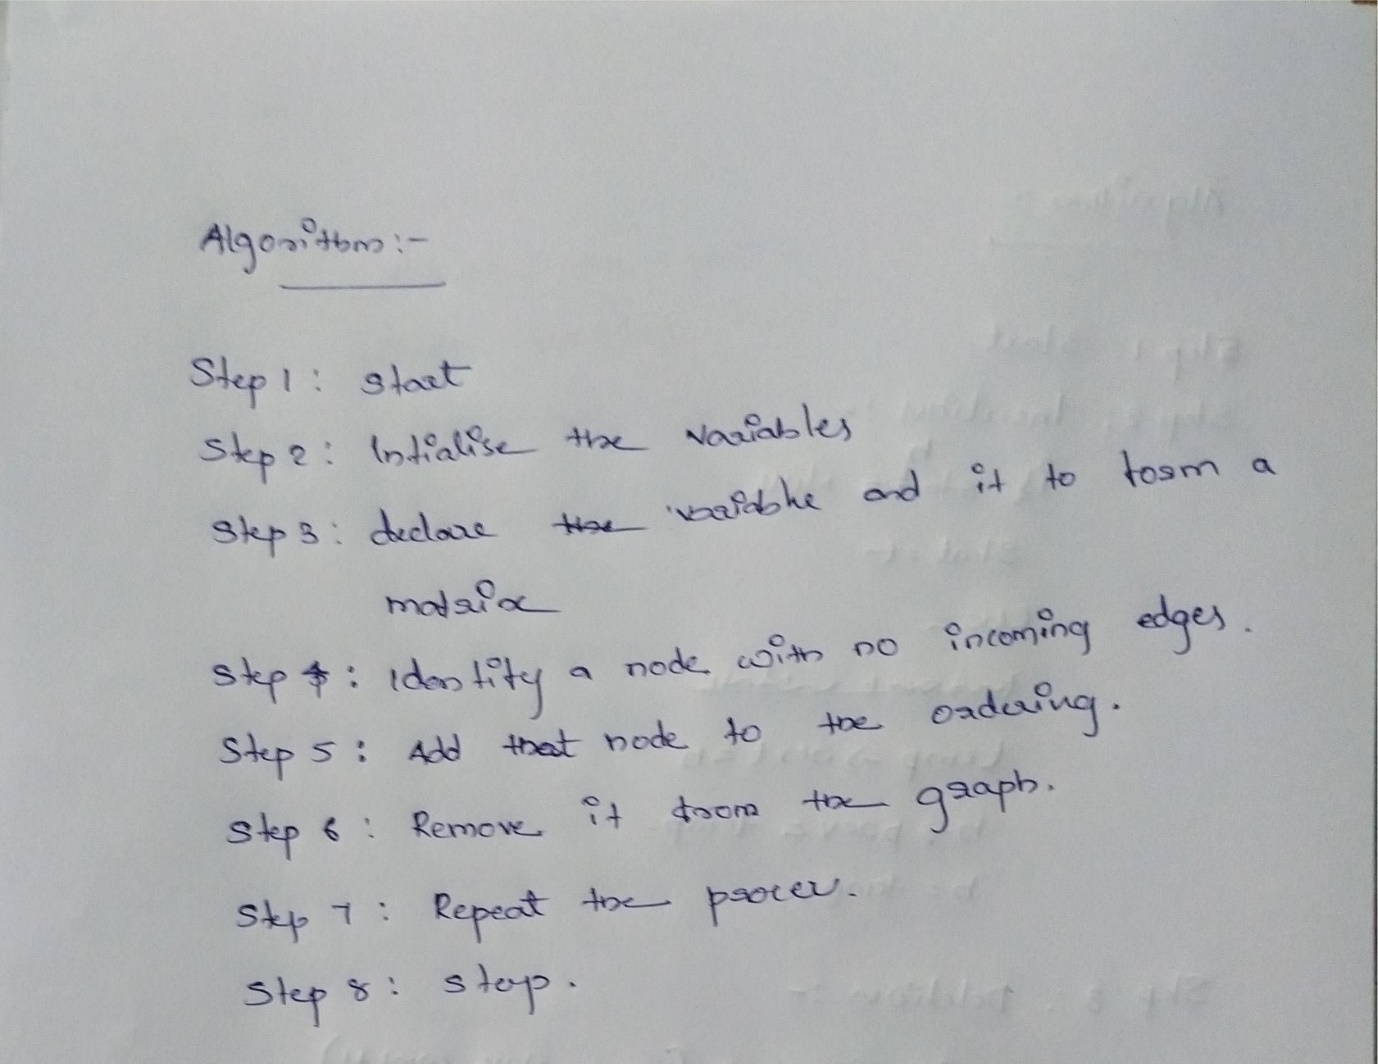 Algorithm:-
Step 1: start
Step 2: Intialise the variables
Step 3: declare the variable and it to form a
matrix
Step 4: Identify a node with no incoming edges.
Step 5: Add that node to the ordering.
Step 6: Remove it from the graph.
Step 7: Repeat the process.
Step 8: stop.